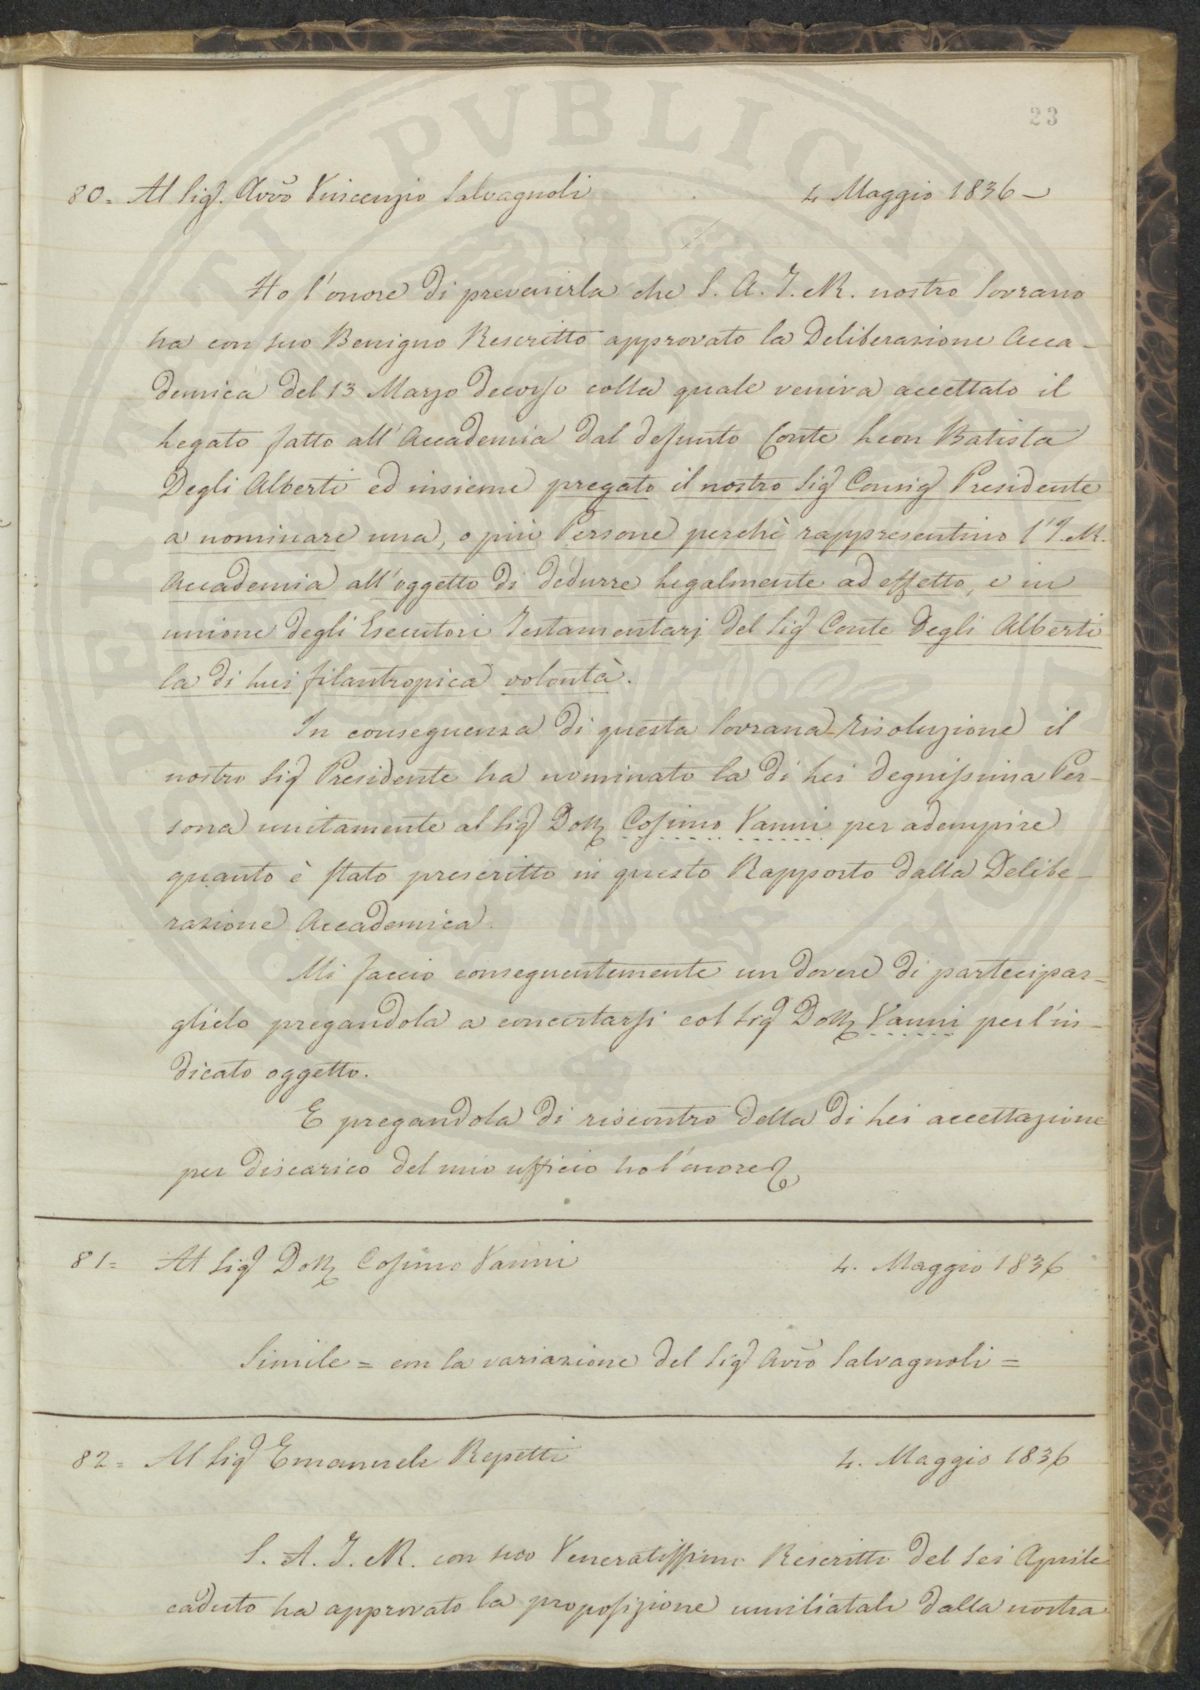 23
80= Al Sig.r Avv.o Vincenzio Salvagnoli 4 Maggio 1836
Ho l'onore di prevenirla che S. A. I. e R. nostro Sovrano
ha con suo Benigno Rescritto approvato la Deliberazione Acca-
demica del 13 Marzo decorso colla quale veniva accettato il
Legato fatto all'Accademia dal defunto Conte Leon Batista
Degli Alberti ed insieme pregato il nostro Sig.r Consig.r Presidente
a nominare una, o più Persone perchè rappresentino l'I. e R.
Accademia all'oggetto di dedurre Legalmente ad effetto, e in
unione degli Esecutori Testamentarj del Sig.r Conte Degli Alberti
la di lui filantropica volontà.
In conseguenza di questa Sovrana risoluzione il
nostro Sig.r Presidente ha nominato la di Lei degnissima Per-
sona unitamente al Sig.r Dott. Cosimo Vanni per adempire
quanto è stato prescritto in questo Rapporto dalla Delibe-
razione Accademica.
Mi faccio conseguentemente un dovere di partecipar-
glielo pregandola a concertarsi col Sig.r Dott. Vanni per l'in-
dicato oggetto.
E pregandola di riscontro della di Lei accettazione
per discarico del mio ufficio ho l'onore &
81= Al Sig.r Dott. Cosimo Vanni 4. Maggio 1836
Simile = con la variazione del Sig.r Avv.o Salvagnoli =
82= Al Sig.r Emanuele Repetti 4. Maggio 1836
S. A. I. e R. con suo Veneratissimo Rescritto del sei Aprile
caduto ha approvato la proposizione umiliatale dalla nostra
PVBLICAE